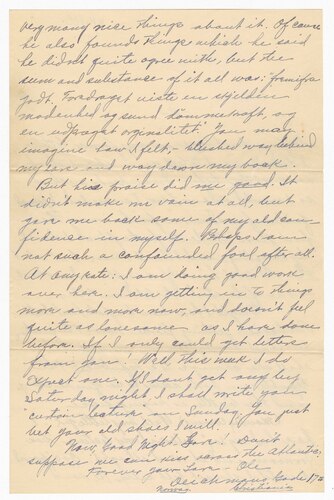 very many nice things about it. Of course
he also found things which he said
he didn't quite agree with, but the
sum and substance of it all was: fremifra
godt. Foredraget viste en sjelden
modenhed og sund dømmekraft, og
en udpræget orginalitet. You may
imagine how I felt, - blushed way behind
my ears and way down my back.
But his praise did me good. It
didn't make me vain at all, but
gave me back some of my old con-
fidence in myself. Perhaps I am
not such a confounded fool after all.
At any rate: I am doing good work
over here. I am getting in to things
more and more now, and doesn't feel
quite as lonesome as I have done
before. If I only could get letters
from you! Well this week I do
expect one. If I don't get any by
Saturday night I shall write you
"curtain lecture" on Sunday. You just
bet your old shoes I will.
Now, Good Night Dear! Don't
suppose we can kiss across the Atlantic,
Forever your Love - Ole
Gade 17
Norway